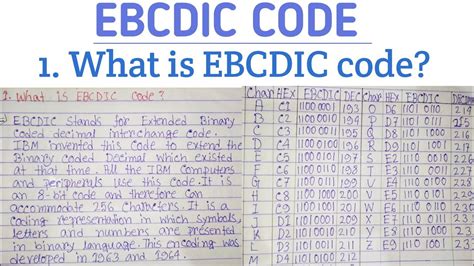 EBCDIC CODE
1. What is EBCDIC code?
What is EBCDIC code?
EBCDIC stands for Extended Binary
Coded decimal interchange code.
IBM invented this code to extend the
Binary Coded Decimal which existed
at that time. All the IBM Computers
and peripherals use this code. It is
an 8-bit code and therefore can
accommodate 256 characters. It is a
coding representation in which symbols,
letters and numbers are presented
in binary language. This encoding was
developed in 1963 and 1964.
Char HEX EBCDIC DEC Char HEX EBCDIC
A C1 1100 0001 193 O D6 1101 0110 214
B C2 1100 0010 194 P D7 1101 0111 215
C C3 1100 0011 195 Q D8 1101 1000 216
D C4 1100 0100 196 R D9 1101 1001 217
E C5 1100 0101 197 S E2 1110 0010
F C6 1100 0110 198 T E3 1110 0011
G C7 1100 0111 199 U E4 1110 0100
H C8 1100 1000 200 V E5 1110 0101
I C9 1100 1001 201 W E6 1110 0110
J D1 1101 0001 209 X E7 1110 0111
K D2 1101 0010 210 Y E8 1110 1000
L D3 1101 0011 211 Z E9 1110 1001
M D4 1101 0100